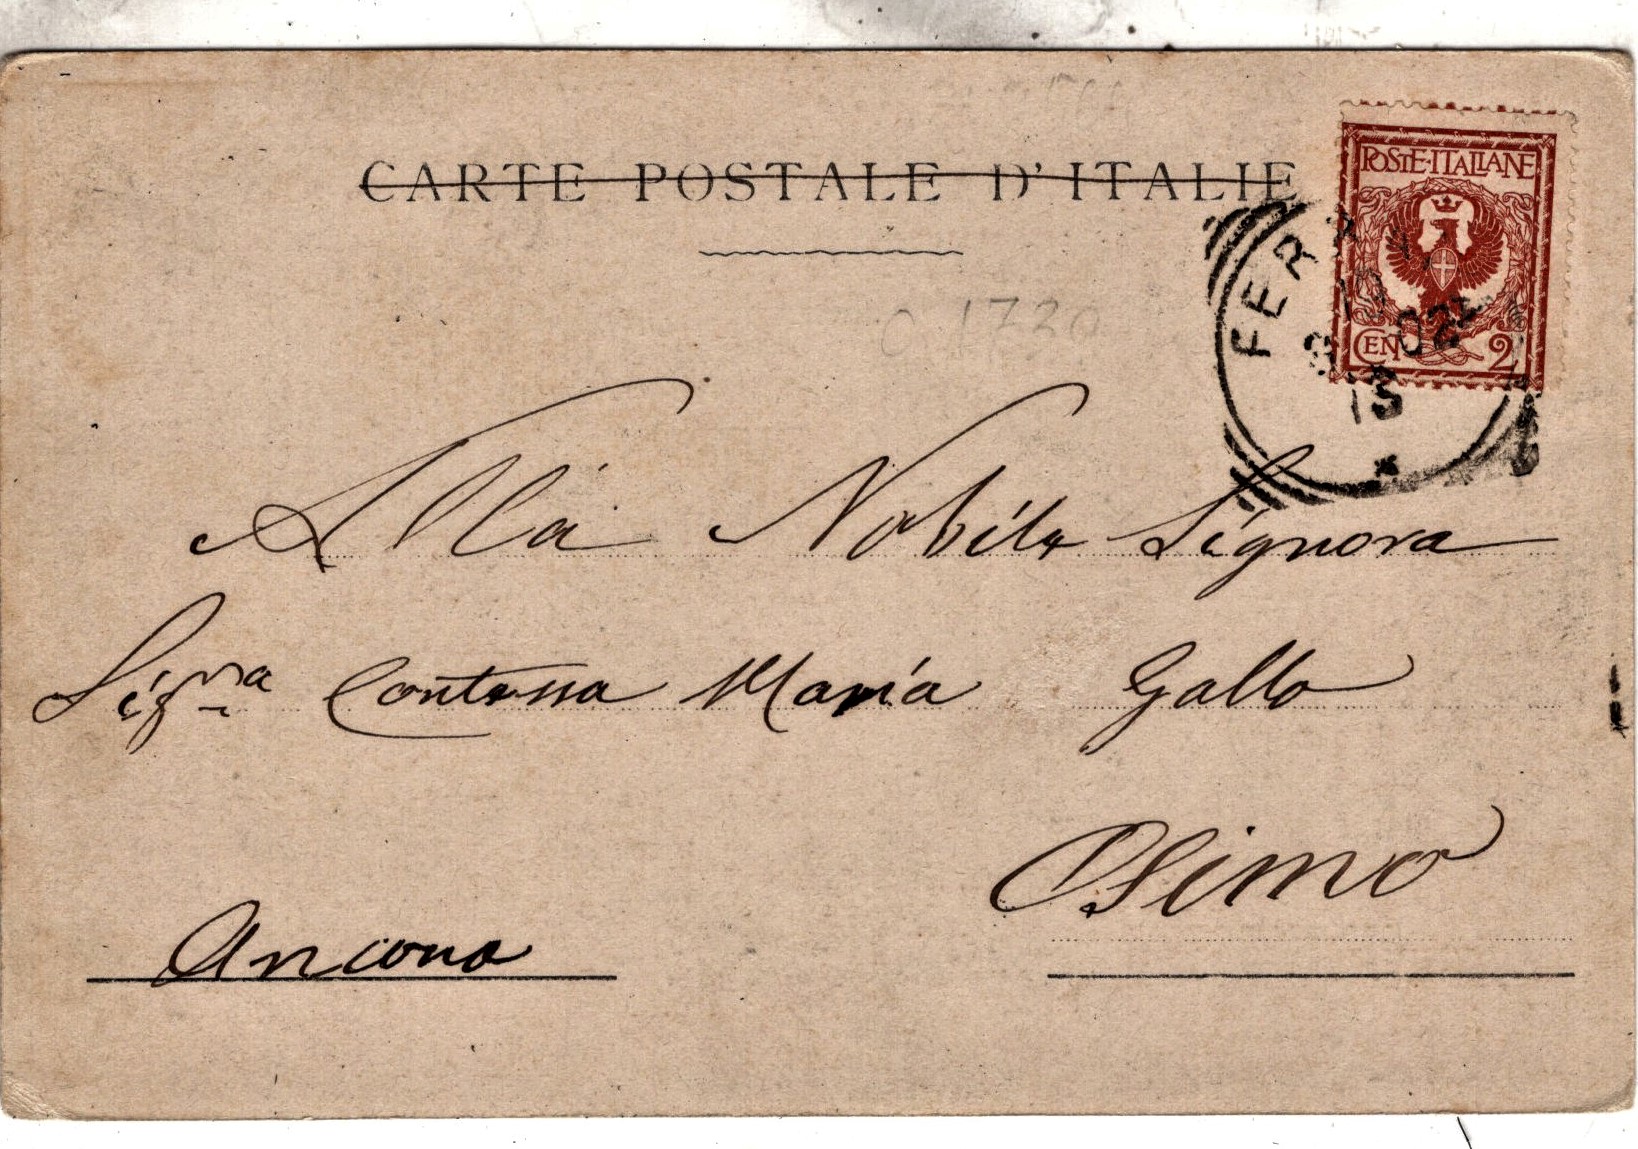 CARTE POSTALE D'ITALIE
POSTE·ITALIANE
CEN 2
FERR
10
02
13
C 1720
Alla Nobile Signora
Sigra Contessa Maria Gallo
Osimo
Ancona